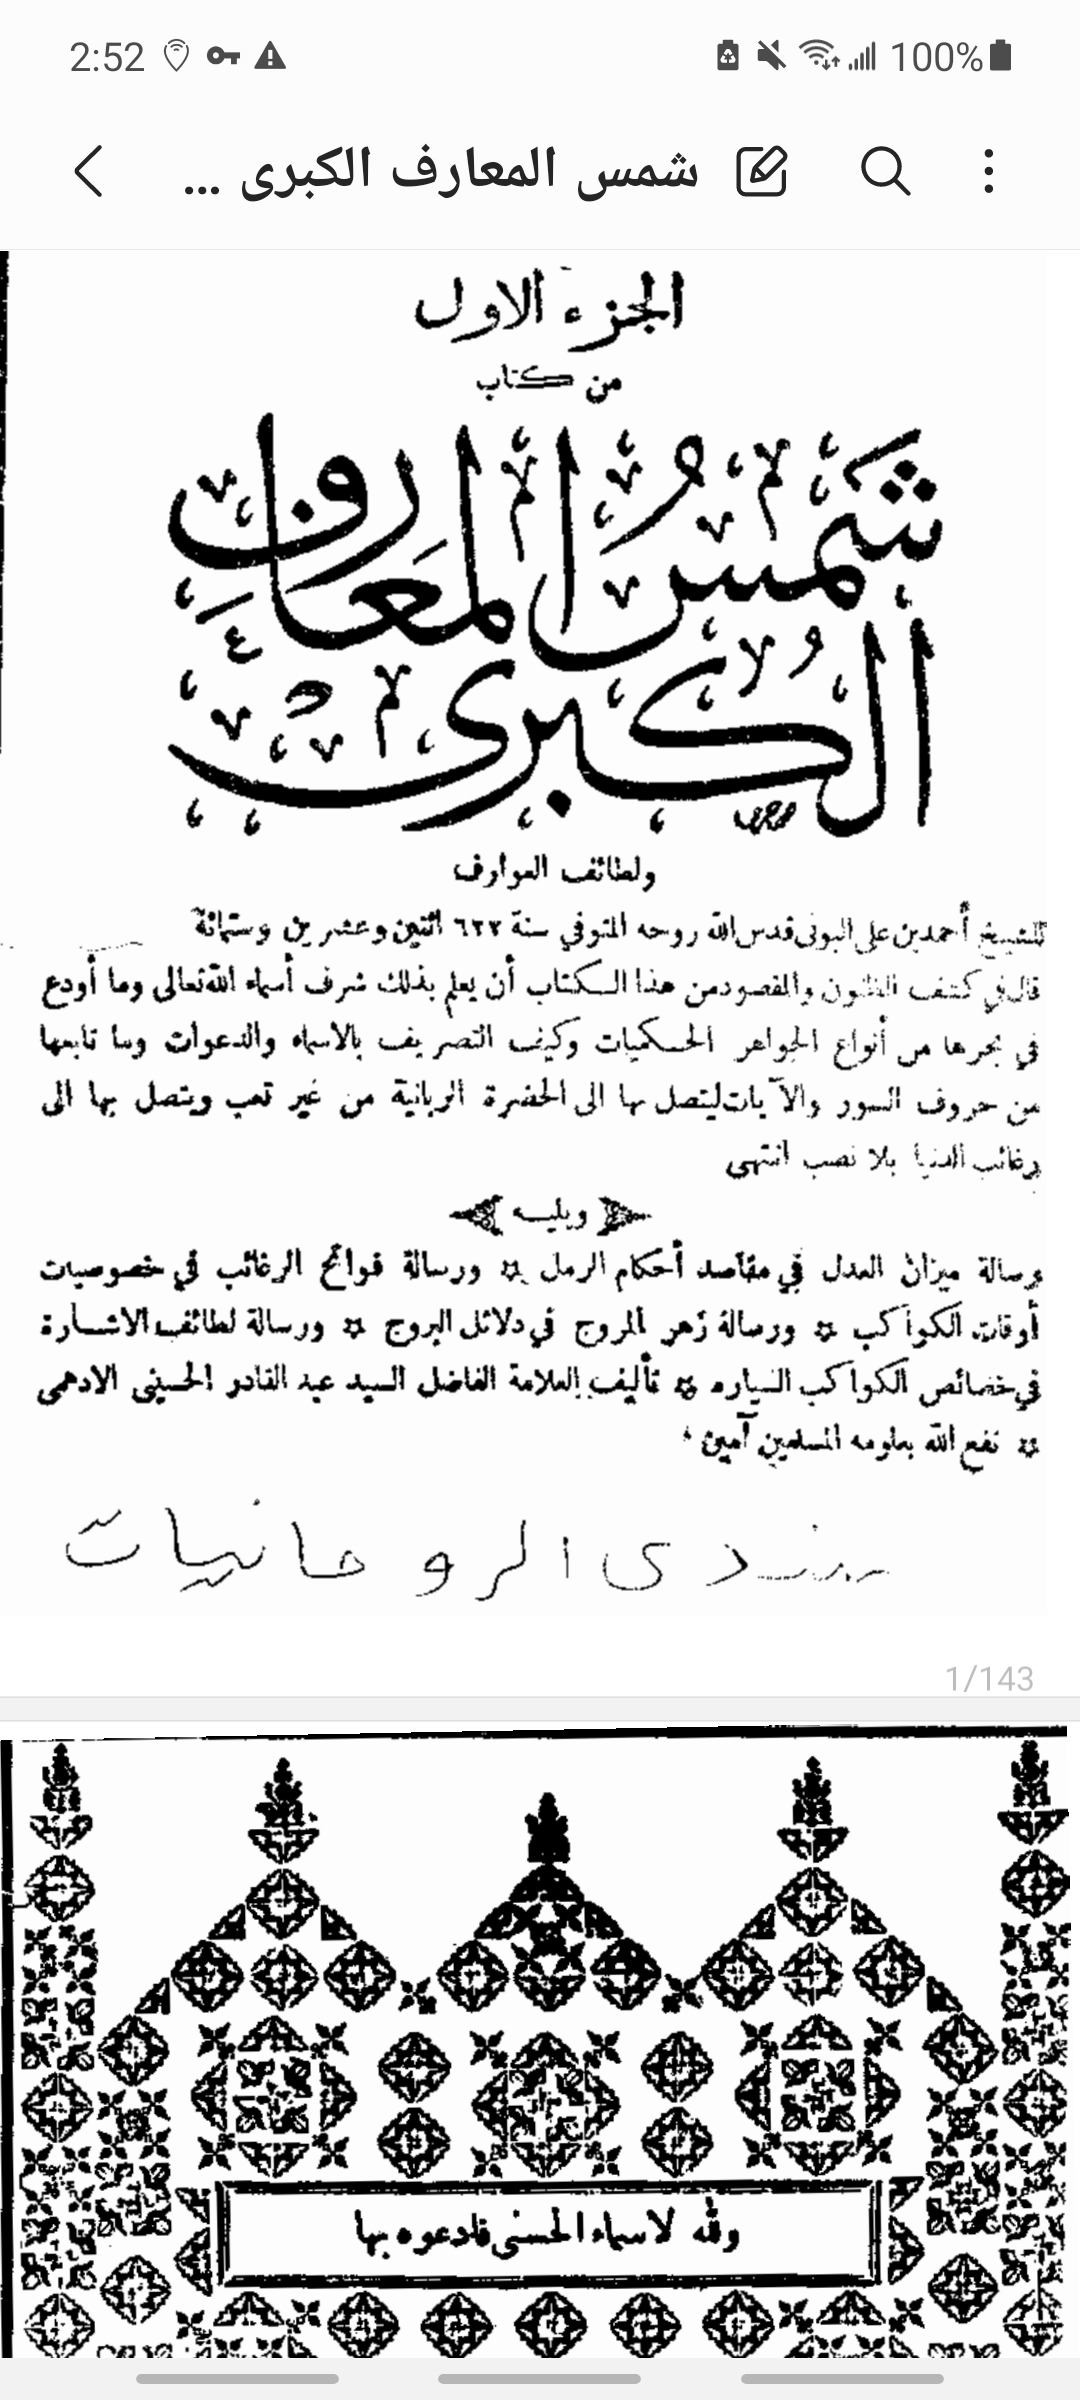 2:52
100%
شمس المعارف الكبرى ...
الجزء الاول
من كتاب
شمس المعارف
الكبرى
ولطائف العوارف
للشيخ أحمد بن على البونى قدس الله روحه المتوفي سنة ٦٢٢ اثنين وعشرين وستمائة
قال في كشف الظنون والمقصود من هذا الكتاب أن يعلم بذلك شرف أسماء الله تعالى وما أودع
في بحرها من أنواع الجواهر الحكميات وكيف التصريف بالاسماء والدعوات وما تابعها
من حروف السور والآيات ليتصل بها الى الحضرة الربانية من غير تعب ويتصل بها الى
رغائب الدنيا بلا نصب انتهى
ويليه
رسالة ميزان العدل في مقاصد أحكام الرمل ورسالة فواتح الرغائب في خصوصيات
أوقات الكواكب ورسالة زهر المروج في دلائل البروج ورسالة لطائف الاشارة
في خصائص الكواكب السياره تأليف العلامة الفاضل السيد عبد القادر الحسيني الادهمى
نفع الله بعلومه المسلمين آمين
الروحانيات
1/143
ولله لاسماء الحسنى فادعوه بها